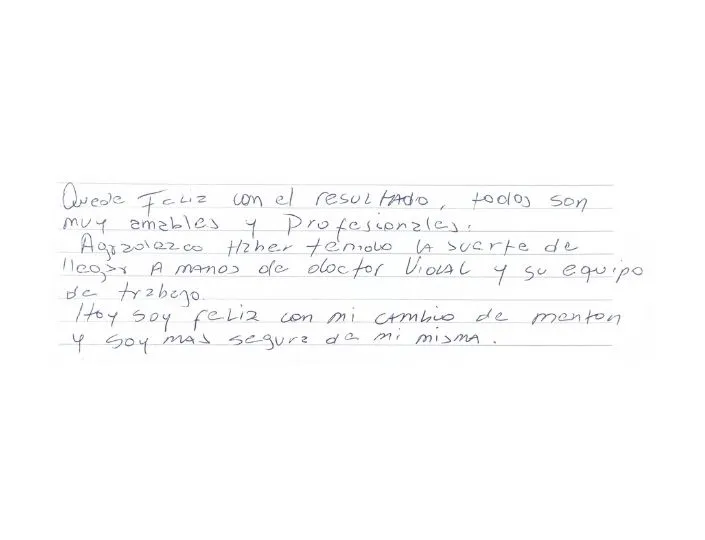 Quede Feliz con el resultado, todos son
muy amables y Profesionales.
Agradezco Haber tenido la suerte de
llegar A manos de doctor Vidal y su equipo
de trabajo.
Hoy soy feliz con mi cambio de menton
y soy mas segura de mi misma.